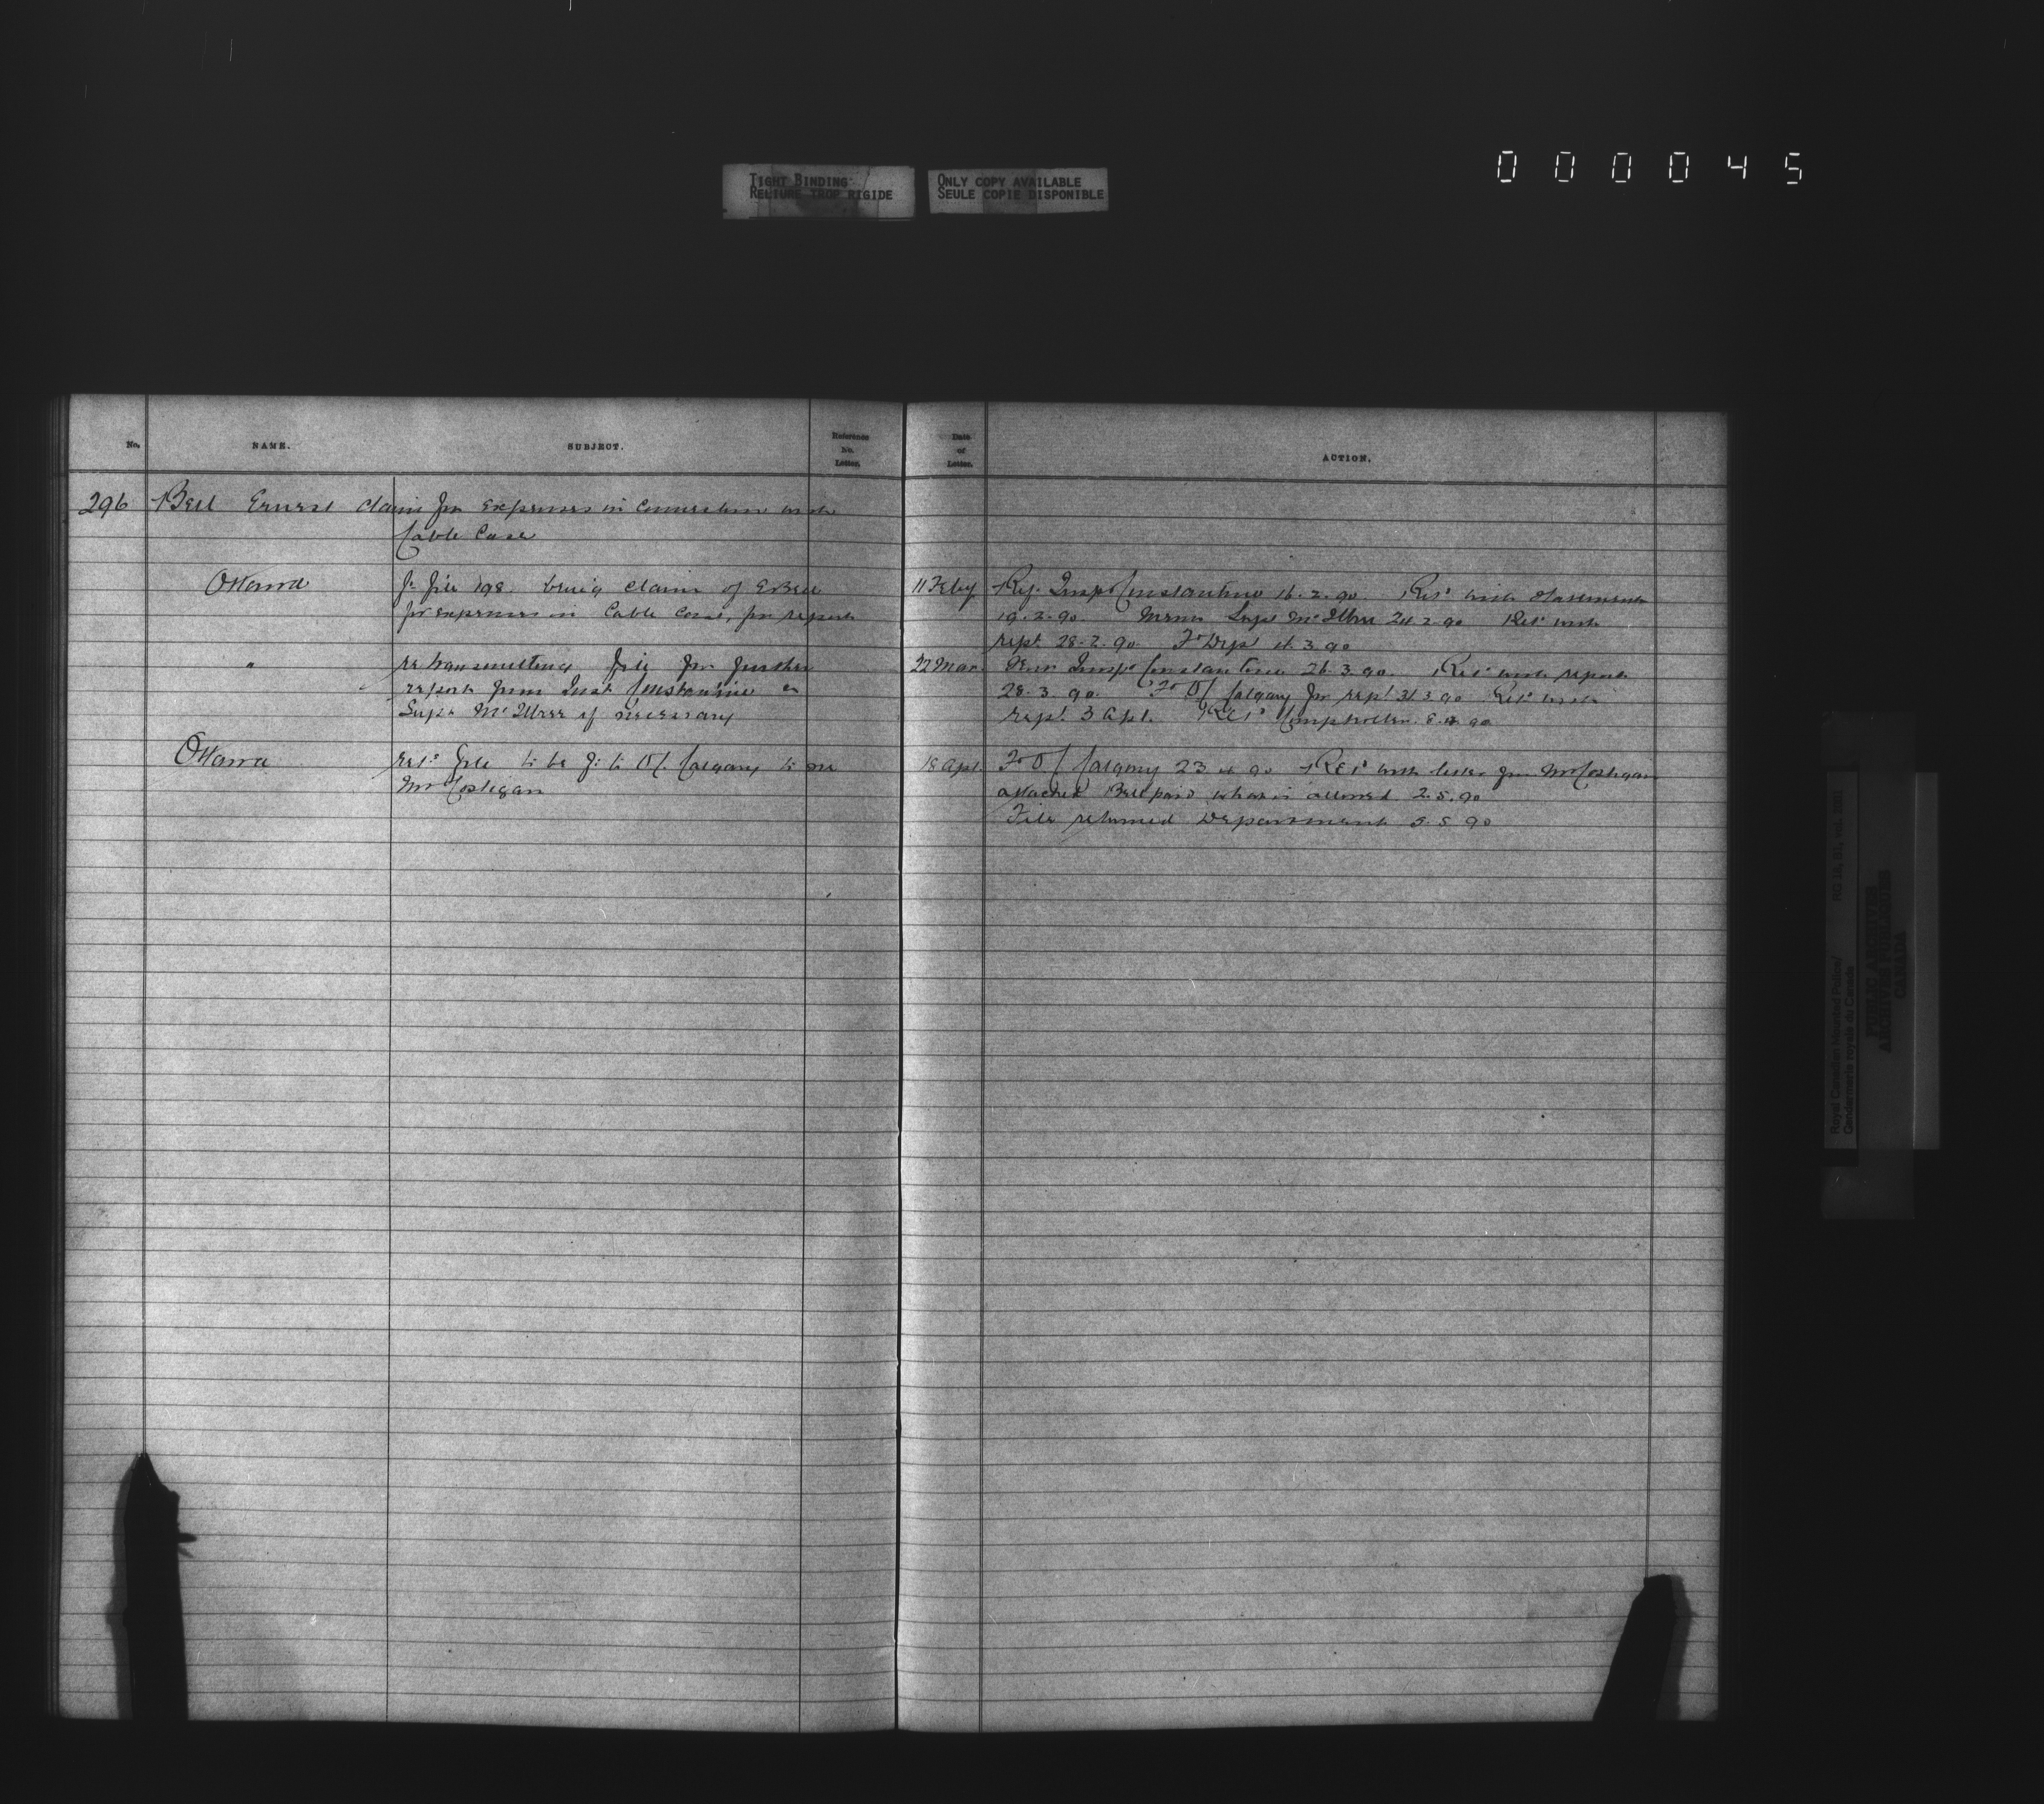 000045
TIGHT BINDING
RELIURE TROP RIGIDE
ONLY COPY AVAILABLE
SEULE COPIE DISPONIBLE
No. NAME. SUBJECT. Reference No. Letter. Date of Letter. ACTION.
296 Bell Ernest claim for expenses in connection with
Cable Case
Ottawa F. file 198 being claim of E Bell
for expenses in Cable Case, for report
11 Feby Ref. Insp Constantine 16.2.90. Ret'd with statement
19.2.90. Memo Supt McIllree 24.2.90 Ret'd with
rept. 28.2.90. Fd Dept 4.3.90
" re transmitting file for further
report from Inst Constantine or
Supt McIllree if necessary
22 Mar. Insp Constantine 26.3.90. Ret'd with report
28.3.90. Fd O/C Calgary for rept. 31.3.90 Ret'd with
rept. 3 Apl. Ret'd Comptroller 8.4.90
Ottawa ret'd file to be fd to O/C Calgary to see
Mr Costigan
18 Apl. Fd O/C Calgary 23.4.90 Ret'd with letter fm Mr Costigan
attached Bell paid what is allowed 2.5.90
File returned Department 5.5.90
Royal Canadian Mounted Police/
Gendarmerie royale du Canada
RG 18, B1, vol.
PUBLIC ARCHIVES
ARCHIVES PUBLIQUES
CANADA